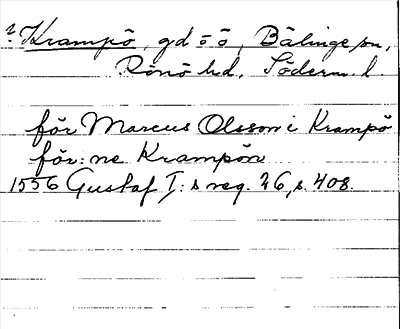 ? Krampö, gd o ö, Bälinge sn,
Rönö hd, Söderm. l.
för Marcus Olsson i Krampö
för: ne Krampön
1556 Gustaf I: s reg. 26, s. 408.